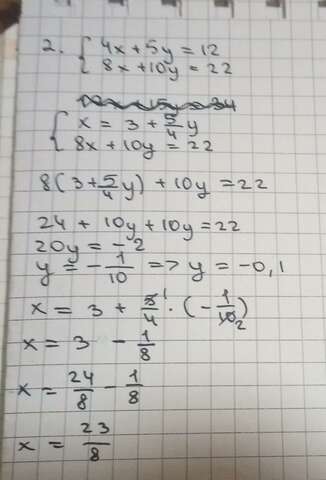 2. { 4x + 5y = 12
8x + 10y = 22
{ x = 3 + 5/4 y
8x + 10y = 22
8(3 + 5/4 y) + 10y = 22
24 + 10y + 10y = 22
20y = -2
y = - 1/10 => y = -0,1
x = 3 + 5/4 · (- 1/10)
x = 3 - 1/8
x = 24/8 - 1/8
x = 23/8